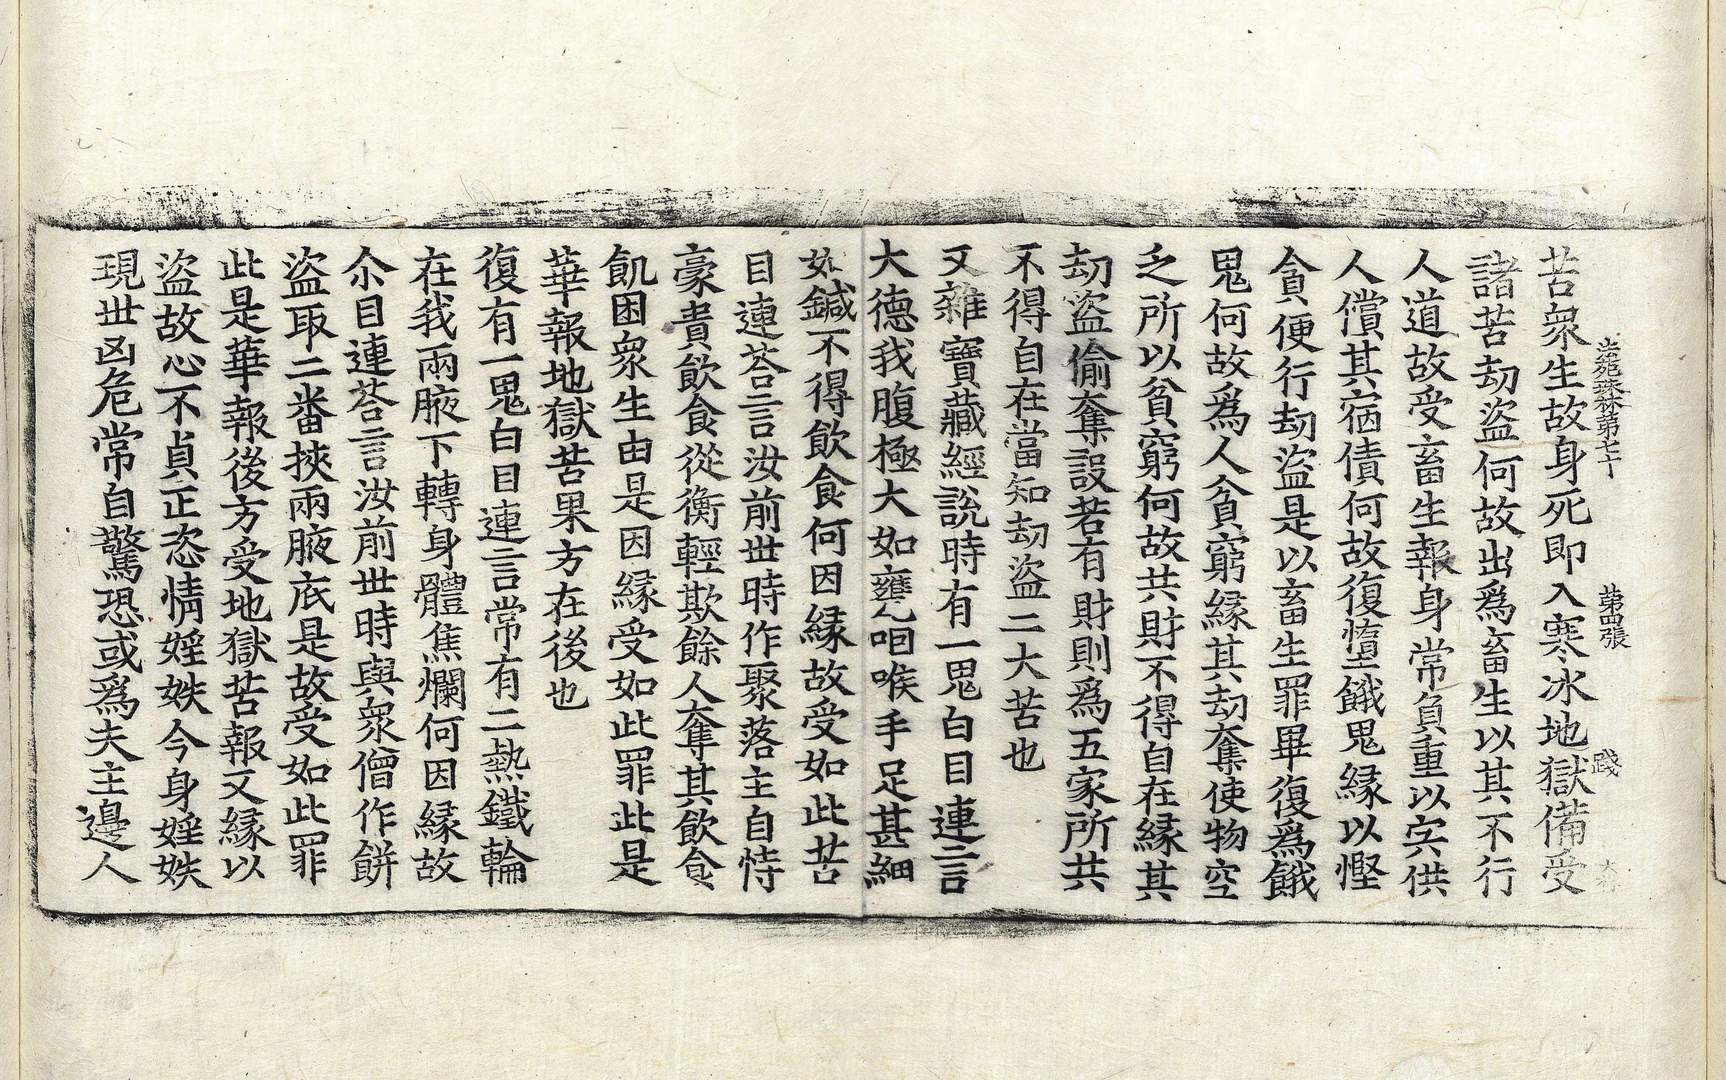 法苑珠林第七十 第四張 踐
苦衆生故身死即入寒氷地獄備受
諸苦劫盜何故出爲畜生以其不行
人道故受畜生報身常負重以宍供
人償其宿債何故復墮餓鬼緣以慳
貪便行劫盜是以畜生罪畢復爲餓
鬼何故爲人貧窮緣其劫奪使物空
乏所以貧窮何故共財不得自在緣其
劫盜偷奪設若有財則爲五家所共
不得自在當知劫盜二大苦也
又雜寶藏經說時有一鬼白目連言
大德我腹極大如甕咽喉手足甚細
如鍼不得飲食何因緣故受如此苦
目連荅言汝前世時作聚落主自恃
豪貴飲食從衡輕欺餘人奪其飲食
飢困衆生由是因緣受如此罪此是
華報地獄苦果方在後也
復有一鬼白目連言常有二熱鐵輪
在我兩腋下轉身體焦爛何因緣故
尒目連荅言汝前世時與衆僧作餅
盜取二番挾兩腋底是故受如此罪
此是華報後方受地獄苦報又緣以
盜故心不貞正恣情婬妷今身婬妷
現世凶危常自驚恐或爲夫主邊人